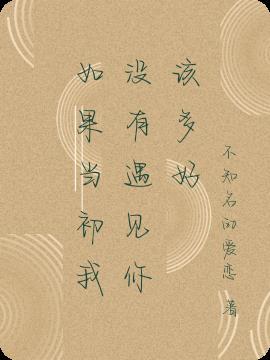 如果当初我
没有遇见你
该多好
不知名的爱恋 著